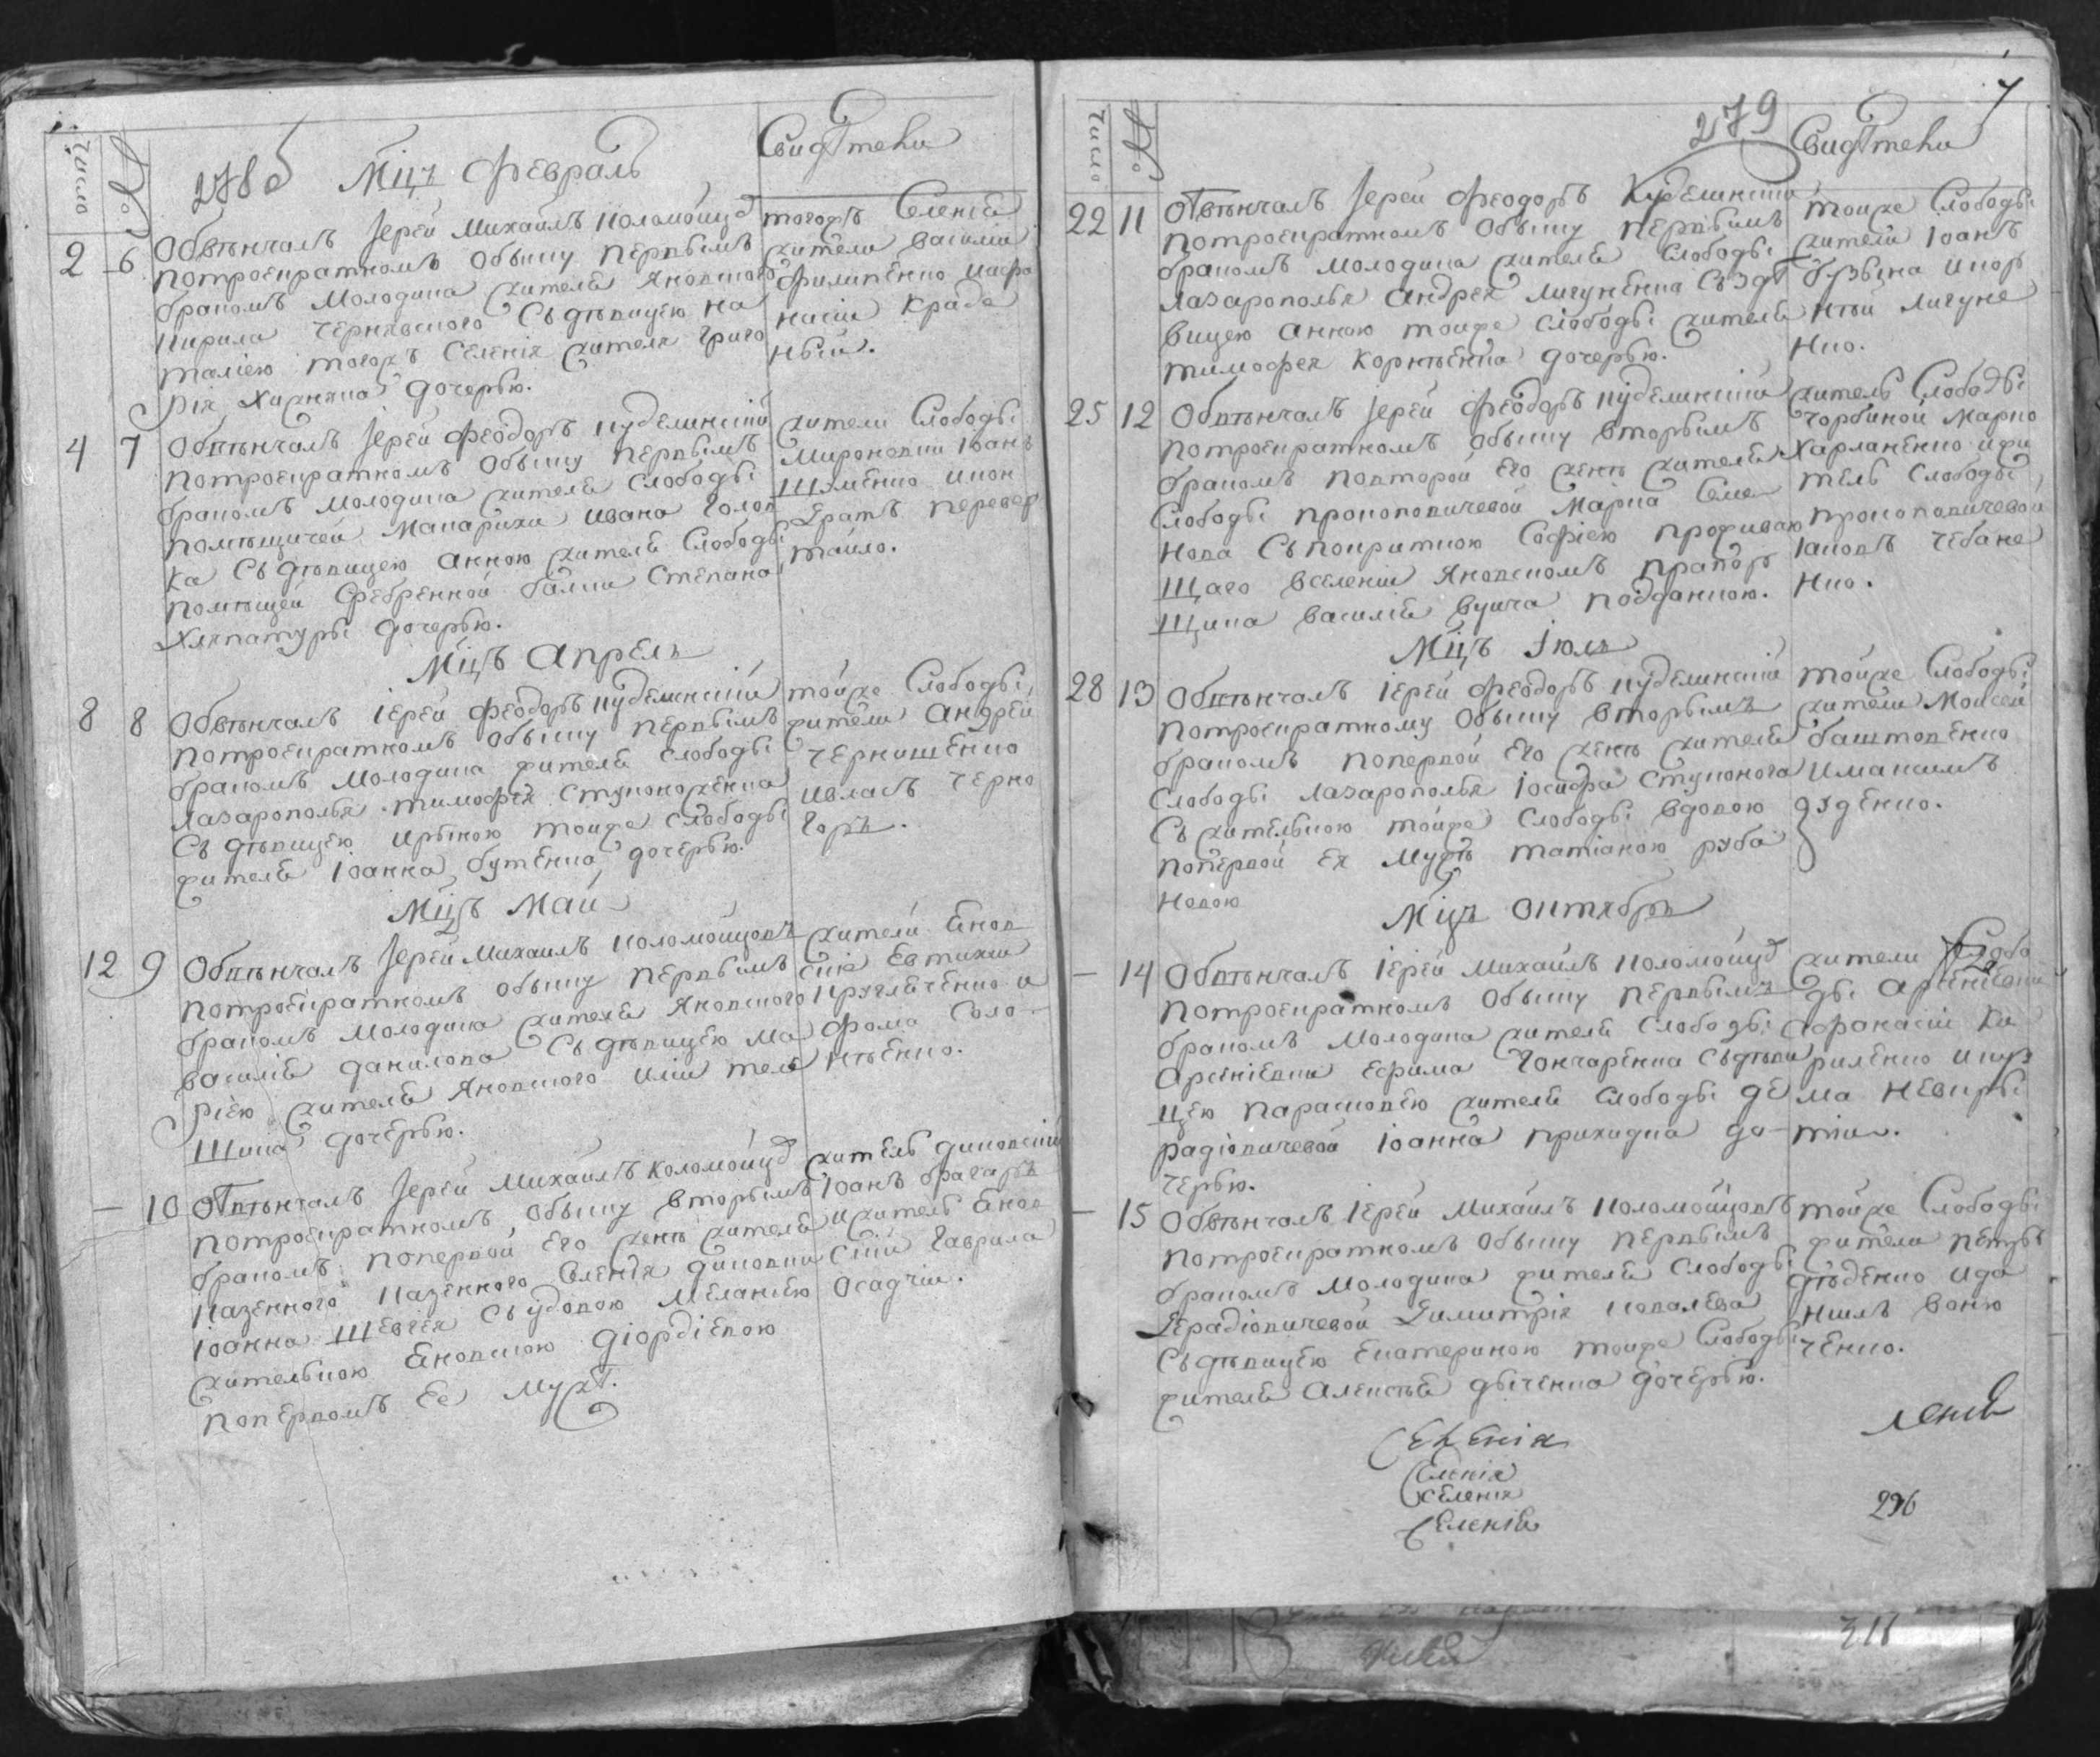 число № 278 б Мцъ Февраль Свидѣтели
2 6 Обвѣнчалъ Іерей Михаилъ Коломойцо
потроекратномъ обыску первымъ
бракомъ молодика жителя Яновского
Кирила Чернявского съ дѣвицею На
таліею тогожъ Селенія жителя Григо
рія Хижняка дочерью.
тогожъ Селенія
жители Василій
Филипенко и Афа
насій Краде
ный.
4 7 Обвѣнчалъ Іерей Феодоръ Куделинскій
потроекратномъ обыску первымъ
бракомъ молодика жителя Слободы
помѣщичей Макарихи Ивана Голов
ка съ дѣвицею Анною жителя Слободы
помѣщей Сребренной балки Степана
Хляпатуры дочерью.
жители Слободы
Мироновки Іоанъ
Шоменко и Кон
дратъ Перевер
тайло.
Мцъ Апрель
8 8 Обвѣнчалъ Іерей Феодоръ Куделинскій
потроекратномъ обыску первымъ
бракомъ молодика жителя Слободы
Лазарополья Тимофея Ступоноженка
съ дѣвицею Ириною тойже Слободы
жителя Іоанна Бутенка дочерью.
тойже Слободы
жители Андрей
Чернишенко
и Власъ Черно
горъ.
Мцъ Май
12 9 Обвѣнчалъ Іерей Михаилъ Коломойцовъ
потроекратномъ обыску первымъ
бракомъ молодика жителя Яновского
Василія Данилова съ дѣвицею Ма
ріею жителя Яновского Иліи Теле
шика дочерью.
жители Янов
скіе Евтихій
Кругличенко и
Фома Соло
нѣенко.
— 10 Обвѣнчалъ Іерей Михаилъ Коломойцо
потроекратномъ обыску вторымъ
бракомъ попервой его женѣ жителя
казенного казенного Селенія Диковки
Іоанна Шевчея съ удовою Меланіею
жителькою Яновскою Діордіевою
попервомъ ее мужѣ.
житель Диковскій
Іоанъ Брагаръ
и житель Янов
скій Гаврила
Осадчій.
число № 279 Свидѣтели 7
22 11 Обвѣнчалъ Іерей Феодоръ Куделинскій
потроекратномъ обыску первымъ
бракомъ молодика жителя Слободы
Лазарополья Андрея Лигуненка съ дѣ
вицею Анною тойже Слободы жителя
Тимофея Корнѣенка дочерью.
тойже Слободы
жители Іоанъ
Бузына и Кор
нѣй Лигуне
нко.
25 12 Обвѣнчалъ Іерей Феодоръ Кудelинскій
потроекратномъ обыску вторымъ
бракомъ повторой его женѣ жителя
Слободы Прокоповичевой Марка Семе
нова съ покриткою Софіею проживаю
щаго вселеніи Яновскомъ прапор
щика Василія Вуича подданкою.
житель Слободы
Чорбиной Марко
Харланенко и жи
тель Слободы
Прокоповичевой
Іаковъ Чебане
нко.
Мцъ Іюль
28 13 Обвѣнчалъ Іерей Феодоръ Куделинскій
потроекратному обыску вторымъ
бракомъ попервой его женѣ жителя
Слободы Лазарополья Іосифа Ступонога
съ жителькою тойже Слободы вдовою
попервой ея мужѣ Татіаною Руба
новою
тойже Слободы
жители Моисей
Баштовенко
и Максимъ
Дуденко.
Мцъ Октябрь
— 14 Обвѣнчалъ Іерей Михаилъ Коломойцо
потроекратномъ обыску первымъ
бракомъ молодика жителя Слободы
Арсеніевки Ефима Гончаренка съ дѣви
цею Парасковѣю жителя Слободы Де
радіовичевой Іоанна Приходка до
черью.
жители Слобо
ды Арсеніевки
Афанасій Ки
риленко и Куз
ма Невиры
тіи.
— 15 Обвѣнчалъ Іерей Михаилъ Коломойцовъ
потроекратномъ обыску первымъ
бракомъ молодика жителя Слободы
Дерадіовичевой Димитрія Ковалева
съ дѣвицею Екатериною тойже Слободы
жителя Алексѣя Дыченка дочерью.
тойже Слободы
жители Петръ
Дѣденко и Да
нилъ Воню
ченко.
Селенія
Селенія
Селенія
Селенія
296
318